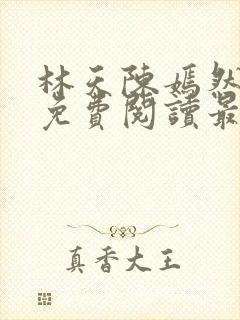 林天陈嫣然
免費閱讀最
真香大王